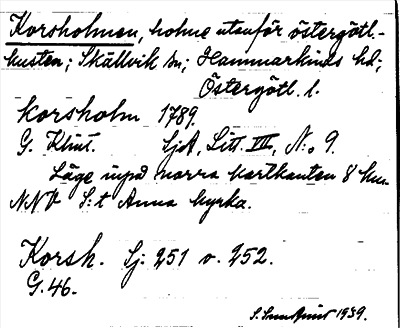 Korsholmen, holme utanför östergötl.-
kusten; Skällvik sn; Hammarkinds hd;
Östergötl. l.
Korsholm 1789.
G. Klint. SjA, Litt. III, N:o 9.
Läge invid norra kartkanten 8 km.
NNV S:t Anna kyrka.
Korsh. Sj: 251 o. 252.
G. 46.
S. Sundquist 1939.